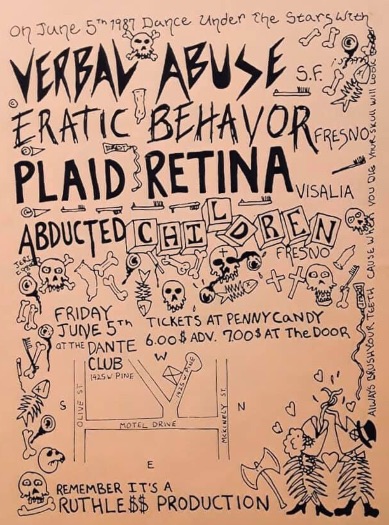 On June 5th 1987 Dance Under the Stars with
VERBAL ABUSE S.F.
ERATIC BEHAVOR FRESNO
PLAID RETINA VISALIA
ABDUCTED CHILDREN
FRESNO
FRIDAY
JUNE 5th
AT THE DANTE
CLUB
1925 W PINE
TICKETS AT PENNY CANDY
6.00$ ADV. 7.00$ AT THE DOOR
W
1925 W PINE
OLIVE ST
S
N
MOTEL DRIVE
MCKINELY ST
E
REMEMBER IT'S A
RUTHLE$$ PRODUCTION
ALWAYS BRUSH YOUR TEETH CAUSE WHEN YOU DIE YOUR SKULL WILL LOOK